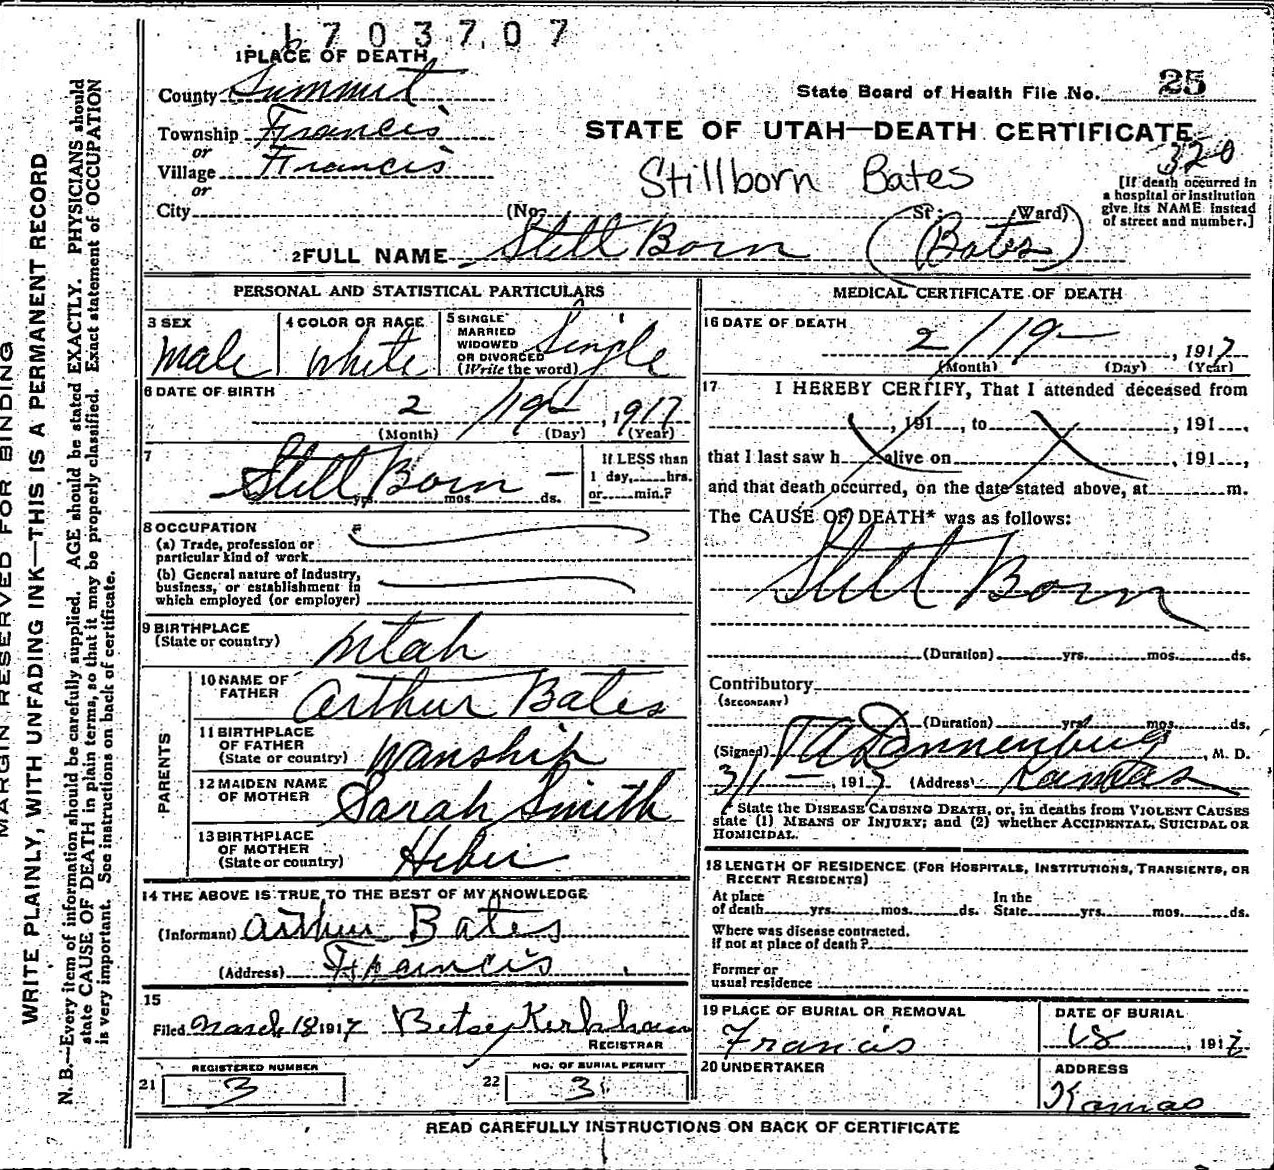 1703707
1 PLACE OF DEATH
County Summit
State Board of Health File No. 25
Township Francis
or
STATE OF UTAH—DEATH CERTIFICATE
320
Village Francis
or
Stillborn Bates
[If death occurred in
a hospital or institution
give its NAME instead
of street and number.]
City (No. St; Ward)
2 FULL NAME Still Born (Bates)
PERSONAL AND STATISTICAL PARTICULARS
3 SEX
male
4 COLOR OR RACE
white
5 SINGLE
MARRIED
WIDOWED
OR DIVORCED
(Write the word)
Single
6 DATE OF BIRTH
2 / 19 - , 1917
(Month) (Day) (Year)
7
Still Born —
yrs. mos. ds.
If LESS than
1 day, hrs.
or min.?
8 OCCUPATION
(a) Trade, profession or
particular kind of work
(b) General nature of industry,
business, or establishment in
which employed (or employer)
9 BIRTHPLACE
(State or country)
Utah
PARENTS
10 NAME OF
FATHER
Arthur Bates
11 BIRTHPLACE
OF FATHER
(State or country)
Wanship
12 MAIDEN NAME
OF MOTHER
Sarah Smith
13 BIRTHPLACE
OF MOTHER
(State or country)
Heber
14 THE ABOVE IS TRUE TO THE BEST OF MY KNOWLEDGE
(Informant) Arthur Bates
(Address) Francis
15
Filed March 18 1917 Betsey Kirkham
REGISTRAR
21
REGISTERED NUMBER
3
22
NO. OF BURIAL PERMIT
3
MEDICAL CERTIFICATE OF DEATH
16 DATE OF DEATH
2 / 19 - , 1917
(Month) (Day) (Year)
17 I HEREBY CERTIFY, That I attended deceased from
, 191 , to , 191 ,
that I last saw h alive on , 191 ,
and that death occurred, on the date stated above, at m.
The CAUSE OF DEATH* was as follows:
Still Born
(Duration) yrs. mos. ds.
Contributory
(SECONDARY)
(Duration) yrs. mos. ds.
(Signed) Dannenburg, M. D.
3/1 — , 1917 (Address) Kamas
* State the DISEASE CAUSING DEATH, or, in deaths from VIOLENT CAUSES
state (1) MEANS OF INJURY; and (2) whether ACCIDENTAL, SUICIDAL OR
HOMICIDAL.
18 LENGTH OF RESIDENCE (FOR HOSPITALS, INSTITUTIONS, TRANSIENTS, OR
RECENT RESIDENTS)
At place
of death yrs. mos. ds.
In the
State yrs. mos. ds.
Where was disease contracted.
if not at place of death?
Former or
usual residence
19 PLACE OF BURIAL OR REMOVAL
Francis
DATE OF BURIAL
18 , 1917
20 UNDERTAKER
ADDRESS
Kamas
READ CAREFULLY INSTRUCTIONS ON BACK OF CERTIFICATE
MARGIN RESERVED FOR BINDING
WRITE PLAINLY, WITH UNFADING INK—THIS IS A PERMANENT RECORD
N. B.—Every item of information should be carefully supplied. AGE should be stated EXACTLY. PHYSICIANS should
state CAUSE OF DEATH in plain terms, so that it may be properly classified. Exact statement of OCCUPATION
is very important. See instructions on back of certificate.